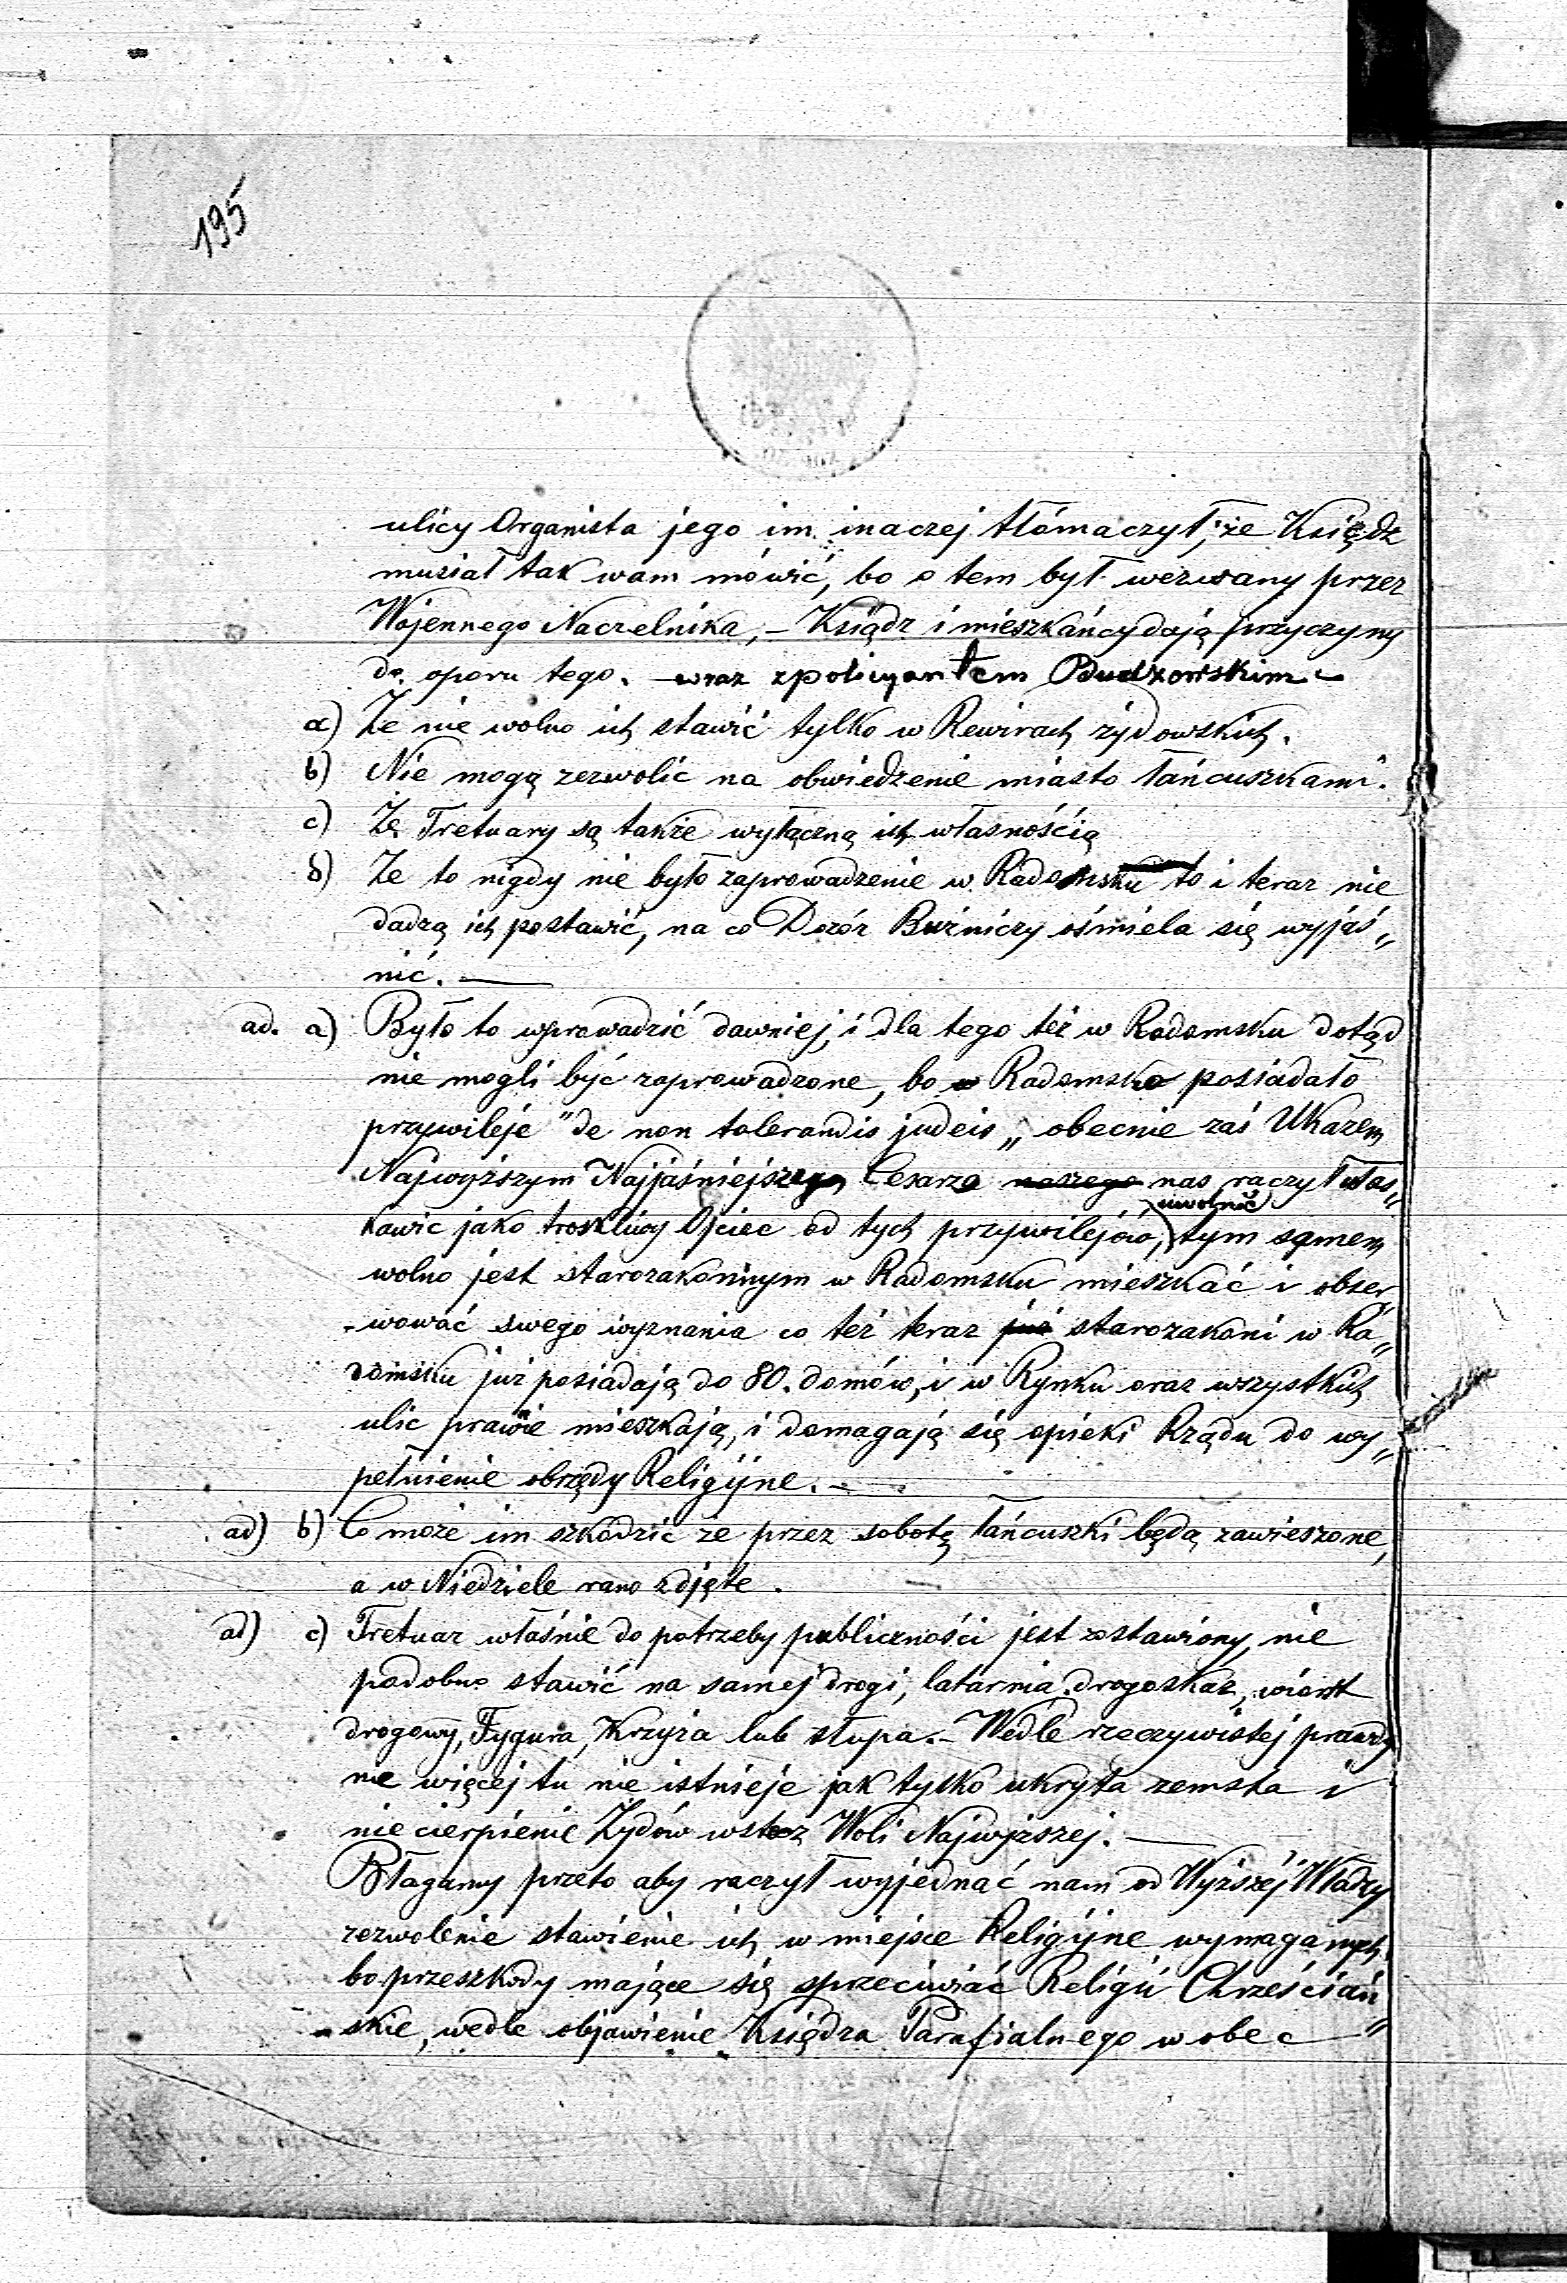 195
ulicy Organista jego im inaczej tłómaczył, że Księdz
musiał tak wam mówić, bo o tem był wezwany przez
Wojennego Naczelnika, – Ksiądz i mieszkańcy dają przyczyny
do oporu tego. – wraz z policyantem Budzowskim –
a) Ze nie wolno ich stawić tylko w Rewirach żydowskich.
b) Nie mogą zezwolić na obwiedzenie miasto łańcuszkami.
c) Zę Tretuary są także wyłączną ich własnością
d) Ze to nigdy nie było zaprowadzenie w Radomsku to i teraz nie
dadzą ich postawić, na co Dozór Bużniczy ośmiela się wyjaś„
nić. —
ad. a) Było to wprowadzić dawniej, i dla tego też w Radomsku dotąd
nie mogli być zaprowadzone, bo Radomsko posiadało
przywileje "de non tolerandis judeis„ obecnie zaś Ukazem
Najwyższym Najjaśniejszego Cesarza naszego nas raczył ułas„
kawic jako troskliwy Ojciec od tych przywilejów, uwolnić tym samem
wolno jest starozakonnym w Radomsku mieszkać i obser„
-wować swego wyznania co też teraz już starozakoni w Ra„
domsku już posiadają do 80. domów, i w Rynku oraz wszystkich
ulic prawie mieszkają, i domagają się opieki Rządu do wy„
pełnienie obrzędy Religijne. –
ad) b) Co może im szkodzić ze przez sobotę łańcuszki będą zawieszone,
a w Niedziele rano zdjęte.
ad) c) Tretuar właśnie do potrzeby publiczności jest zostawiony, nie
podobno stawić na samej drogi, latarnia, drogoskaz, wiorst
drogowy, Fygura, Krzyża lub słupa. – Wedle rzeczywistej prawdy
nie więcej tu nie istnieje jak tylko ukryta zemsta i
nie cierpienie Żydów wstecz Woli Najwyższej. —
Błagamy przeto aby raczył wyjednać nam od Wyższej Władzy
zezwolenie stawienie ich w miejsce Religijne wymaganych
bo przeszkody mające się sprzeciwiać Religii Chrześciań„
skie, wedle objawienie Księdza Parafialnego w obec